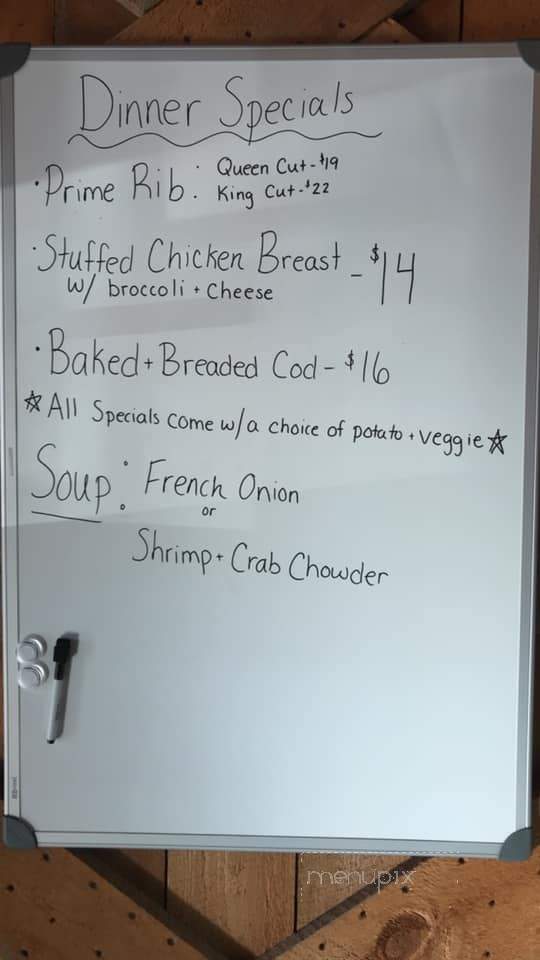 Dinner Specials
• Prime Rib. Queen Cut - $19
King Cut - $22
• Stuffed Chicken Breast - $14
w/ broccoli + cheese
• Baked + Breaded Cod - $16
☆ All Specials come w/a choice of potato + veggie ☆
Soup: French Onion
or
Shrimp + Crab Chowder
menupix